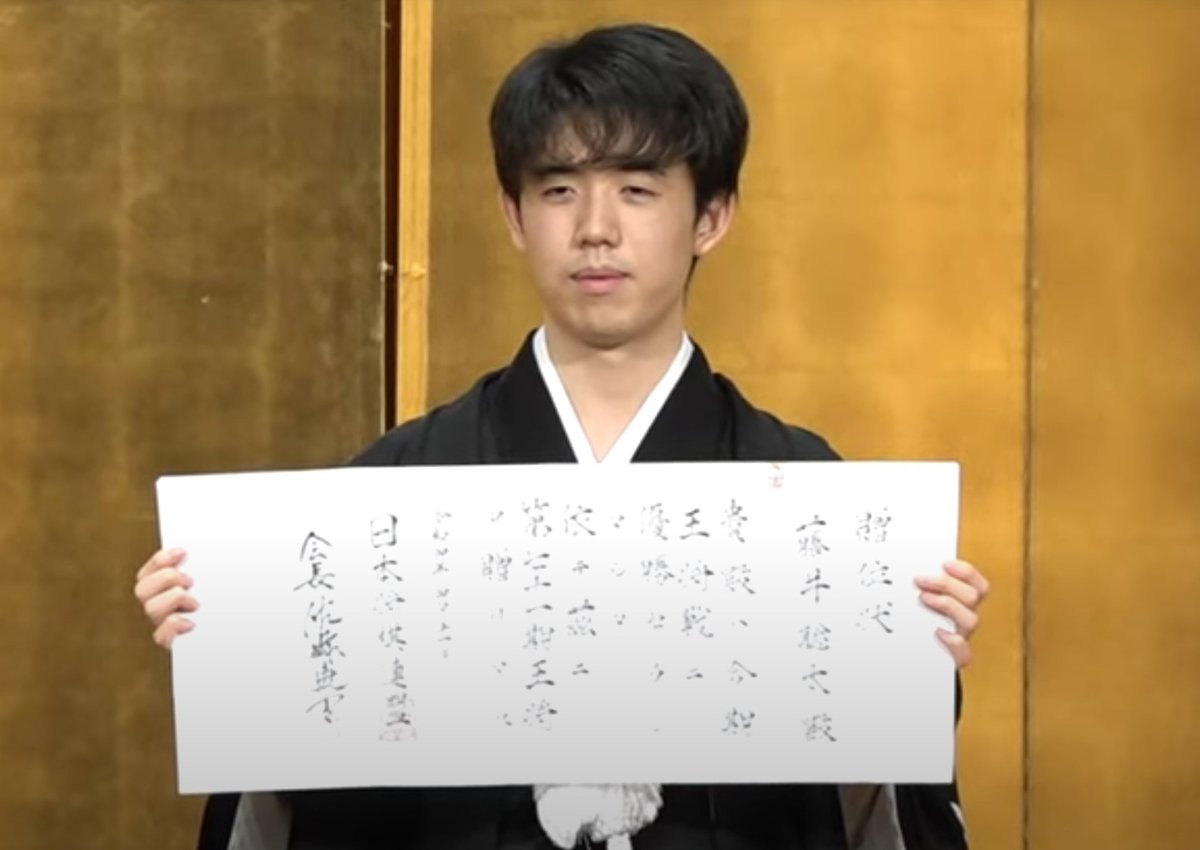 贈位状
藤井聡太殿
貴殿ハ今期
王将戦ニ
優勝セラ
依テ茲ニ
第七十一期王将
ヲ贈リマス
日本将棋連盟
会長佐藤康光